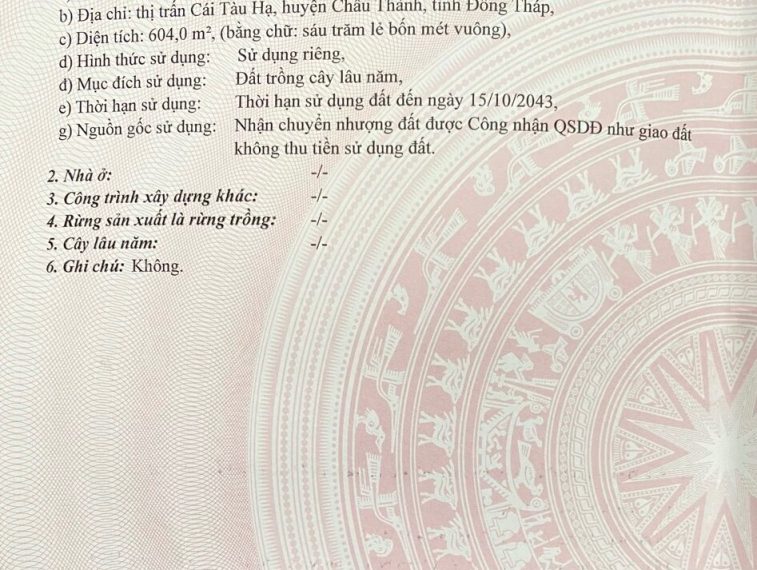 b) Địa chỉ: thị trấn Cái Tàu Hạ, huyện Châu Thành, tỉnh Đồng Tháp,
c) Diện tích: 604,0 m², (bằng chữ: sáu trăm lẻ bốn mét vuông),
d) Hình thức sử dụng: Sử dụng riêng,
đ) Mục đích sử dụng: Đất trồng cây lâu năm,
e) Thời hạn sử dụng: Thời hạn sử dụng đất đến ngày 15/10/2043,
g) Nguồn gốc sử dụng: Nhận chuyển nhượng đất được Công nhận QSDĐ như giao đất
không thu tiền sử dụng đất.
2. Nhà ở: -/-
3. Công trình xây dựng khác: -/-
4. Rừng sản xuất là rừng trồng: -/-
5. Cây lâu năm: -/-
6. Ghi chú: Không.